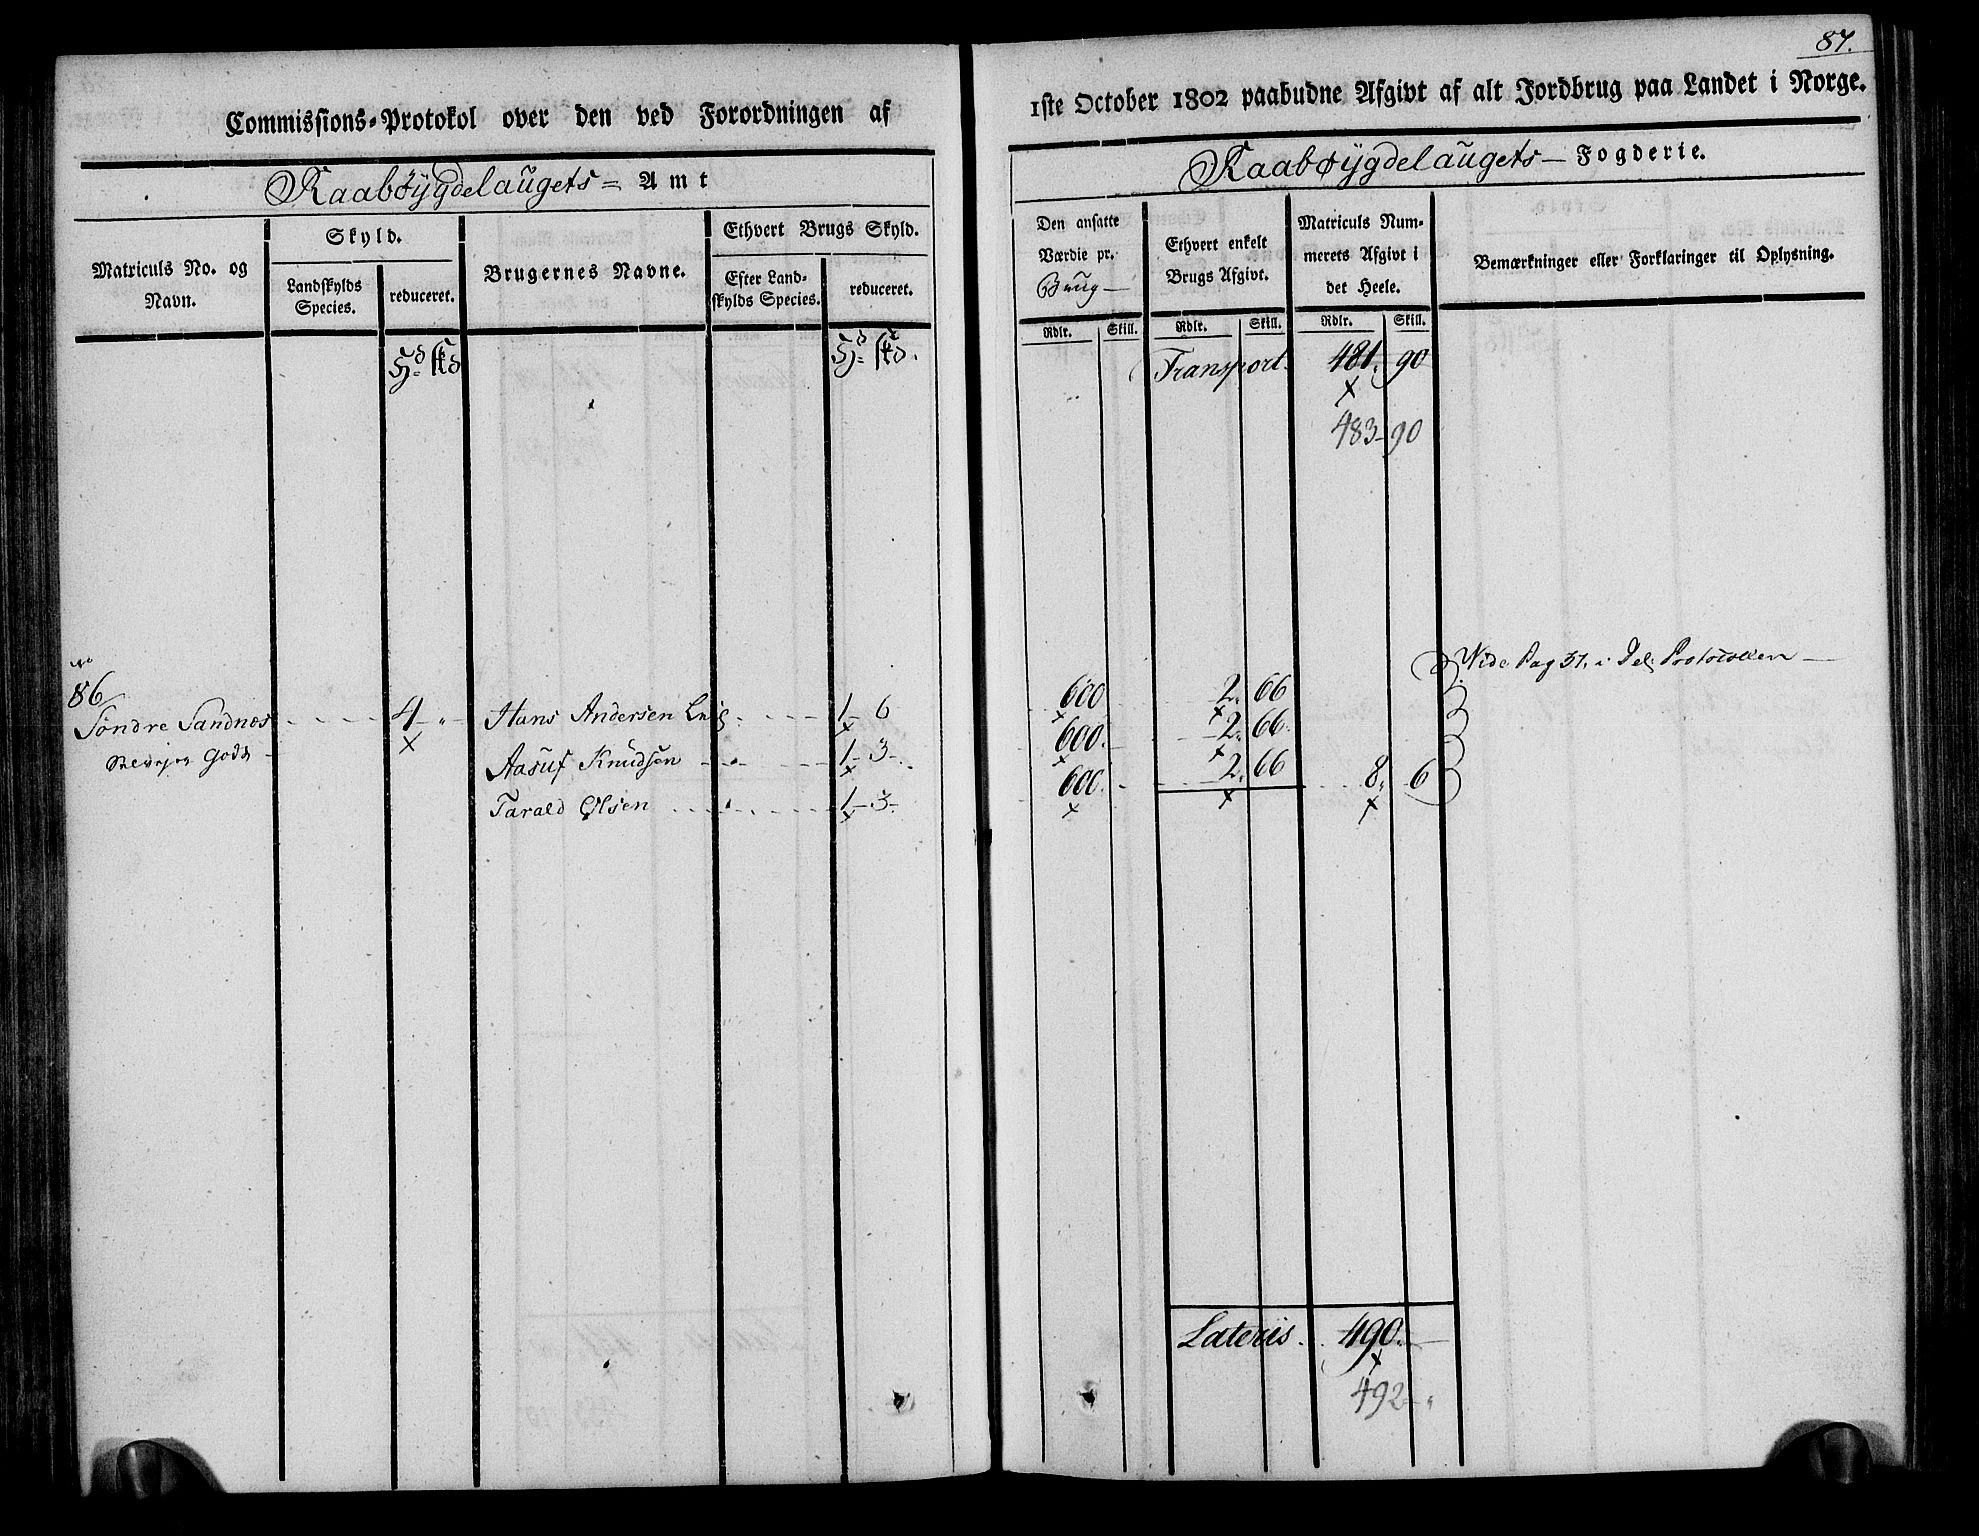 Commissions-Protokol over den ved Forordningen af
Raabøygdelaugets= Amt
Matriculs No. og Navn.
Skyld.
Landskylds Species.
reduceret.
Brugernes Navne.
Ethvert Brugs Skyld.
Efter Landskylds Species.
reduceret.
No
86
Söndre Sandnes - - - - 4 - „ - Hans Andersen - - - - 1 - 6
Godts - Aasuf Knudsen - - - 1 - 3 -
Tarald Olsen - - - - 1 - 3 -
87.
1ste October 1802 paabudne Afgivt af alt Jordbrug paa Landet i Norge.
Raabøygdelaugets - Fogderie.
Den ansatte Værdie pr. Brug -
Ethvert enkelt Brugs Afgivt.
Matriculs Nummerets Afgivt i det Heele.
Bemærkninger eller Forklaringer til Oplysning.
Rdlr. Skill. Rdlr. Skill. Rdlr. Skill.
Transport. 481. 90
483 - 90
Vide Pag 37. i Del. Protocollen -
600 2. 66
600. 2. 66.
600. 2. 66 8. 6
Lateris. 490. -
492 - „